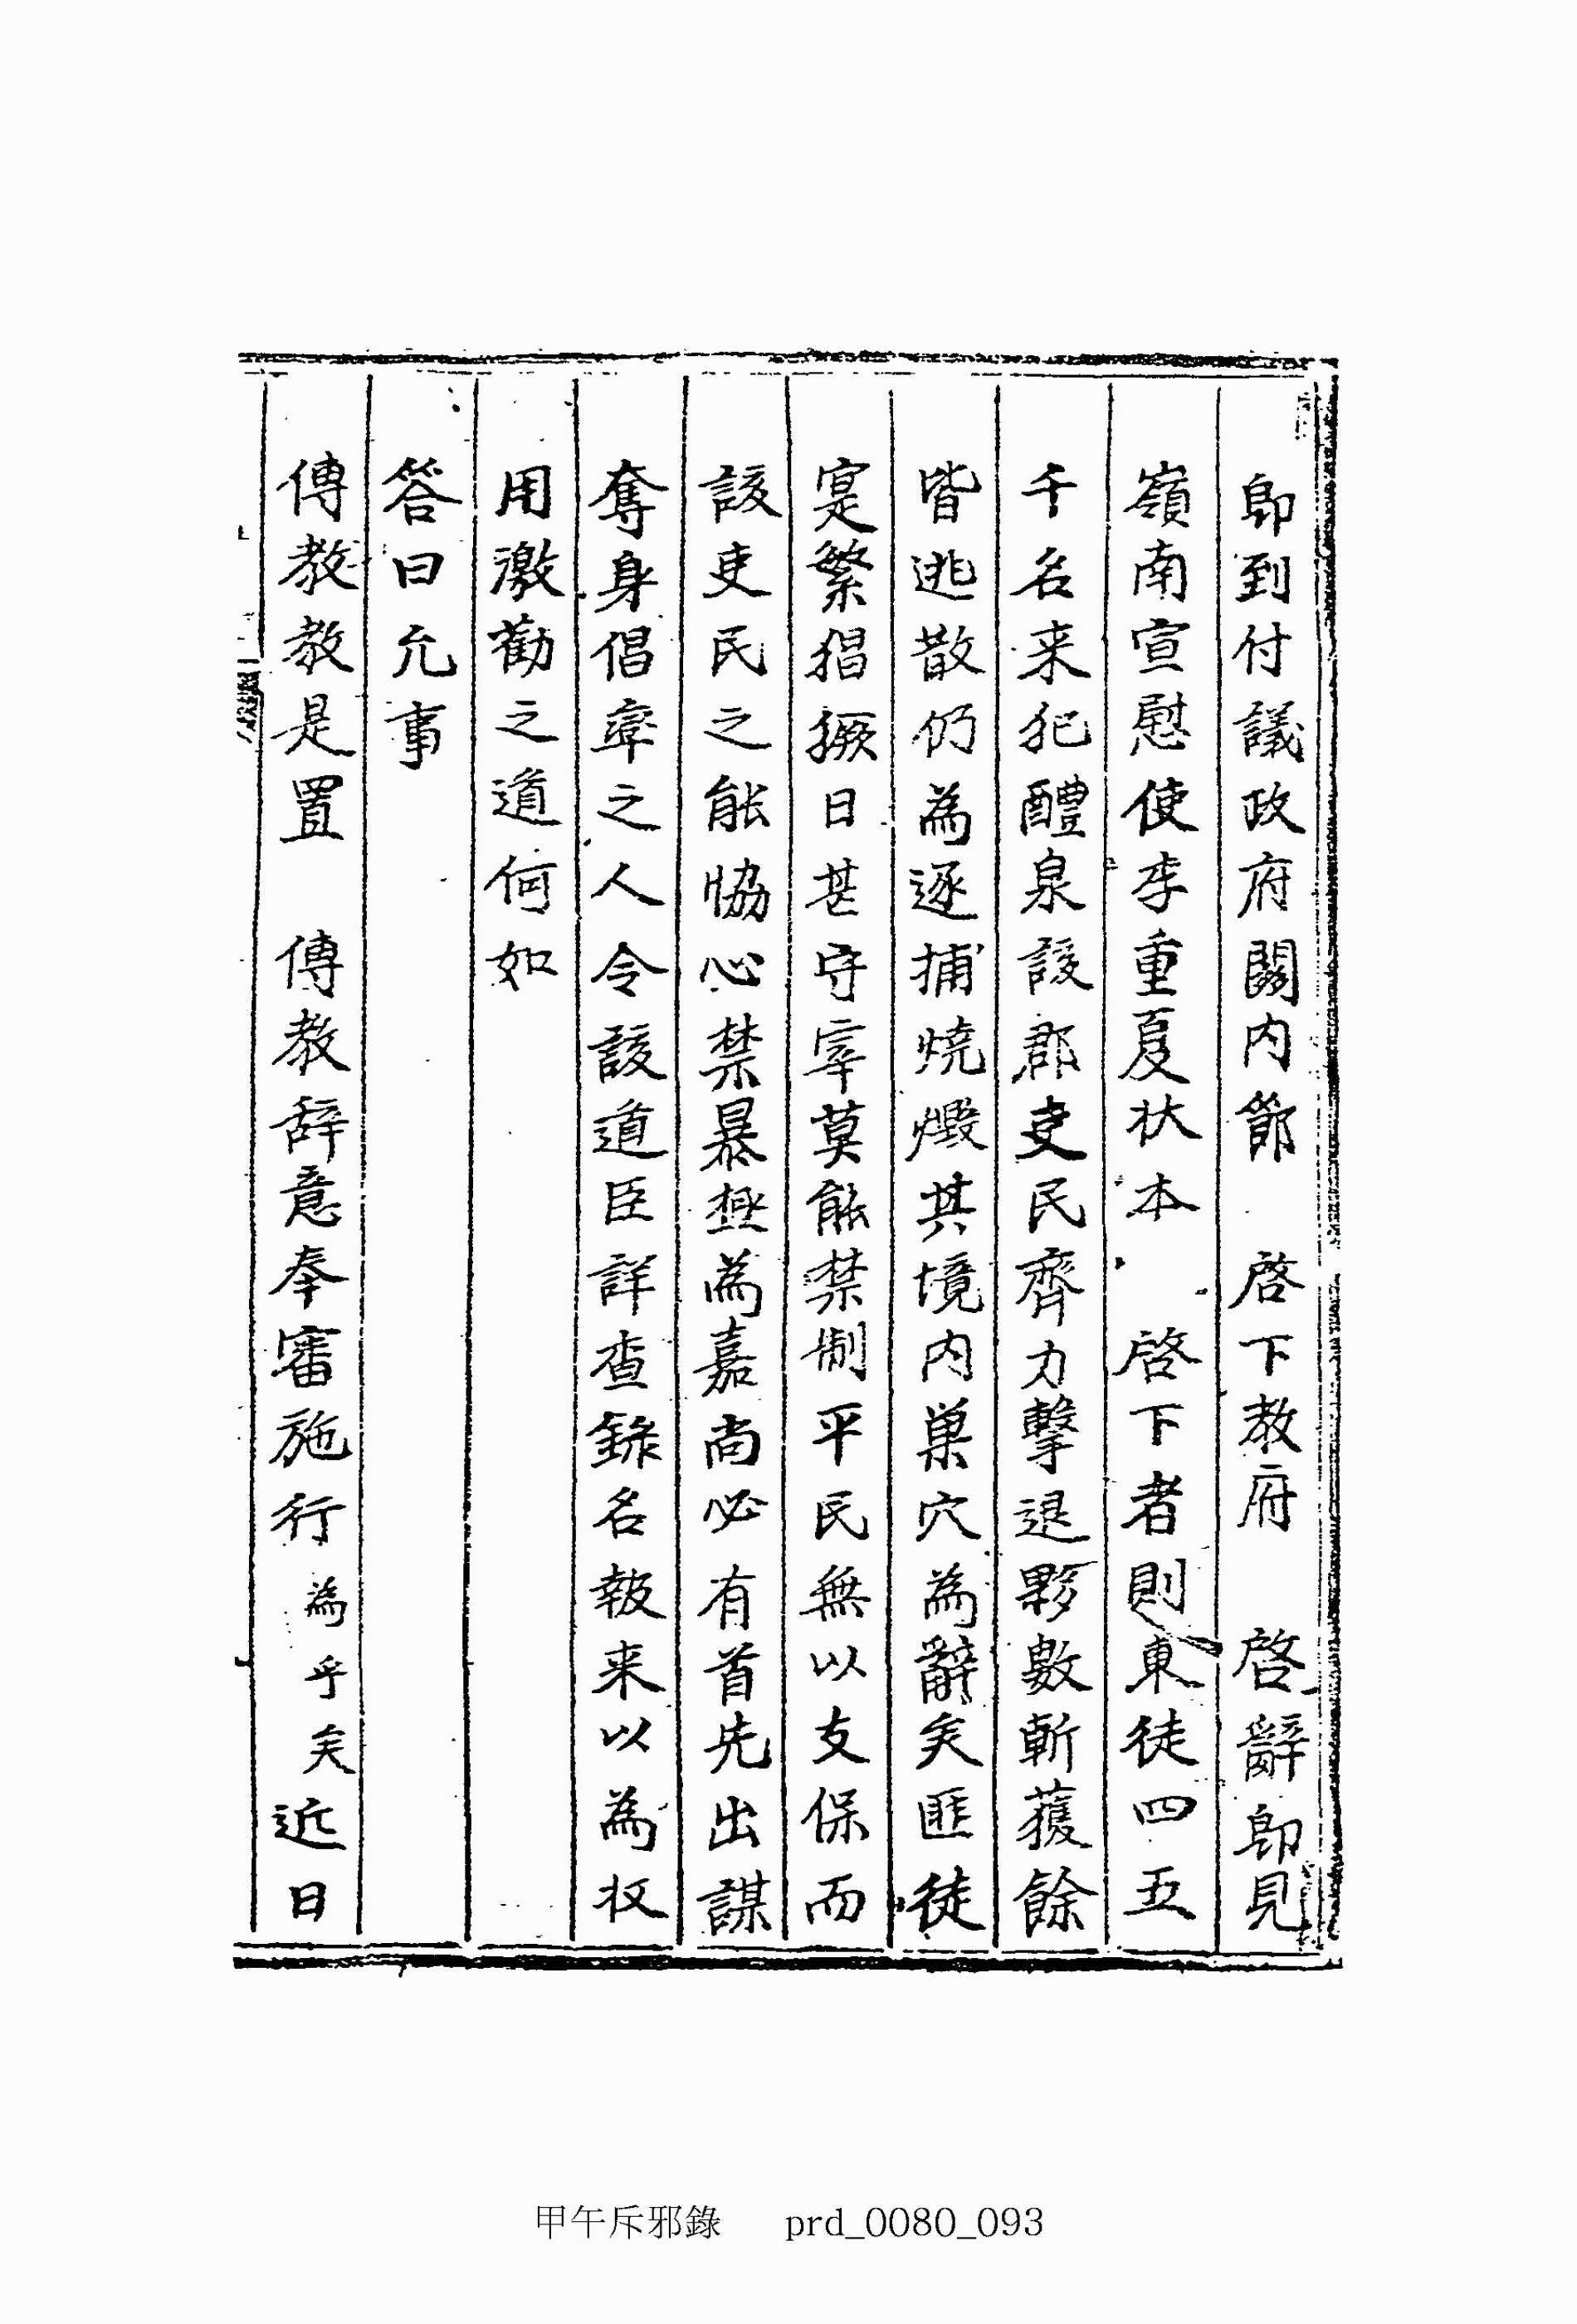 卽到付議政府關內節　啓下敎府　啓辭卽見
嶺南宣慰使李重夏狀本　啓下者則東徒四五
千名来犯醴泉該郡吏民齊力擊退夥數斬獲餘
皆逃散仍為逐捕燒燬其境內巢穴為辭矣匪徒
寔繁猖獗日甚守宰莫能禁制平民無以支保而
該吏民之能恊心禁暴極為嘉尚必有首先出謀
奪身倡率之人令該道臣詳查錄名報来以為收
用激勸之道何如
答曰允事
傳敎敎是置　傳敎辞意奉審施行為乎矣近日
甲午斥邪錄 prd_0080_093